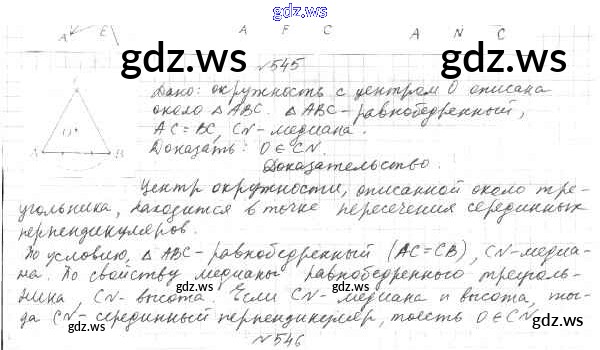 gdz.ws
A E A F C A N C
gdz.ws gdz.ws
№545
Дано: окружность с центром O описана
около △ABC. △ABC-равнобедренный,
AC=BC, CN-медиана.
Доказать: O∈CN.
O
A B
Доказательство.
Центр окружности, описанной около тре-
угольника, находится в точке пересечения серединных
перпендикуляров.
gdz.ws gdz.ws
По условию, △ABC-равнобедренный (AC=CB), CN-медиа-
на. По свойству медианы равнобедренного треуголь-
ника, CN-высота. Если CN-медиана и высота, то-
да CN-серединный перпендикуляр, тоесть O∈CN
gdz.ws gdz.ws
№546